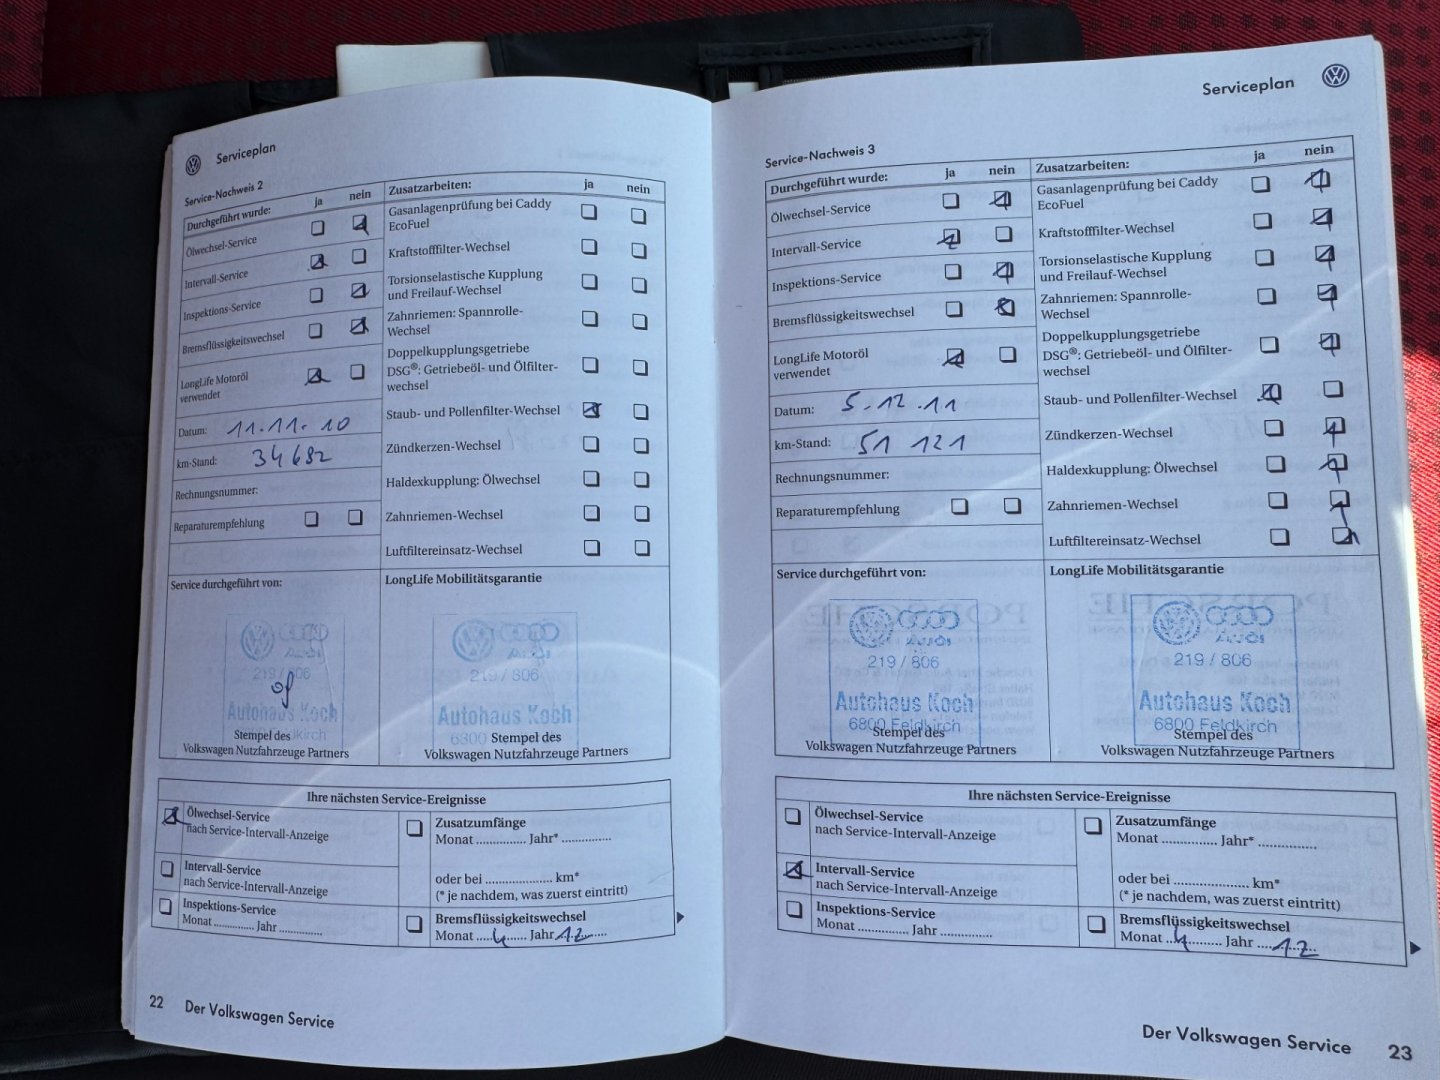 Serviceplan
Service-Nachweis 2
Durchgeführt wurde: ja nein
Ölwechsel-Service
Intervall-Service
Inspektions-Service
Bremsflüssigkeitswechsel
LongLife Motoröl
verwendet
Datum: 11.11.10
km-Stand: 34682
Rechnungsnummer:
Reparaturempfehlung
Zusatzarbeiten: ja nein
Gasanlagenprüfung bei Caddy
EcoFuel
Kraftstofffilter-Wechsel
Torsionselastische Kupplung
und Freilauf-Wechsel
Zahnriemen: Spannrolle-
Wechsel
Doppelkupplungsgetriebe
DSG®: Getriebeöl- und Ölfilter-
wechsel
Staub- und Pollenfilter-Wechsel
Zündkerzen-Wechsel
Haldexkupplung: Ölwechsel
Zahnriemen-Wechsel
Luftfiltereinsatz-Wechsel
Service durchgeführt von:
Audi
219/806
Autohaus Koch
Stempel des
Volkswagen Nutzfahrzeuge Partners
LongLife Mobilitätsgarantie
Audi
219/806
Autohaus Koch
6800
Stempel des
Volkswagen Nutzfahrzeuge Partners
Ihre nächsten Service-Ereignisse
Ölwechsel-Service
nach Service-Intervall-Anzeige
Intervall-Service
nach Service-Intervall-Anzeige
Inspektions-Service
Monat .............. Jahr ..............
Zusatzumfänge
Monat .............. Jahr* ..............
oder bei ................... km*
(* je nachdem, was zuerst eintritt)
Bremsflüssigkeitswechsel
Monat 4 Jahr 12
22 Der Volkswagen Service
Serviceplan
Service-Nachweis 3
Durchgeführt wurde: ja nein
Ölwechsel-Service
Intervall-Service
Inspektions-Service
Bremsflüssigkeitswechsel
LongLife Motoröl
verwendet
Datum: 5.12.11
km-Stand: 51 121
Rechnungsnummer:
Reparaturempfehlung
Zusatzarbeiten: ja nein
Gasanlagenprüfung bei Caddy
EcoFuel
Kraftstofffilter-Wechsel
Torsionselastische Kupplung
und Freilauf-Wechsel
Zahnriemen: Spannrolle-
Wechsel
Doppelkupplungsgetriebe
DSG®: Getriebeöl- und Ölfilter-
wechsel
Staub- und Pollenfilter-Wechsel
Zündkerzen-Wechsel
Haldexkupplung: Ölwechsel
Zahnriemen-Wechsel
Luftfiltereinsatz-Wechsel
Service durchgeführt von:
Audi
219/806
Autohaus Koch
6800 Feldkirch
Stempel des
Volkswagen Nutzfahrzeuge Partners
LongLife Mobilitätsgarantie
Audi
219/806
Autohaus Koch
6800 Feldkirch
Stempel des
Volkswagen Nutzfahrzeuge Partners
Ihre nächsten Service-Ereignisse
Ölwechsel-Service
nach Service-Intervall-Anzeige
Intervall-Service
nach Service-Intervall-Anzeige
Inspektions-Service
Monat .............. Jahr ..............
Zusatzumfänge
Monat .............. Jahr* ..............
oder bei ................... km*
(* je nachdem, was zuerst eintritt)
Bremsflüssigkeitswechsel
Monat 4 Jahr 12
Der Volkswagen Service 23